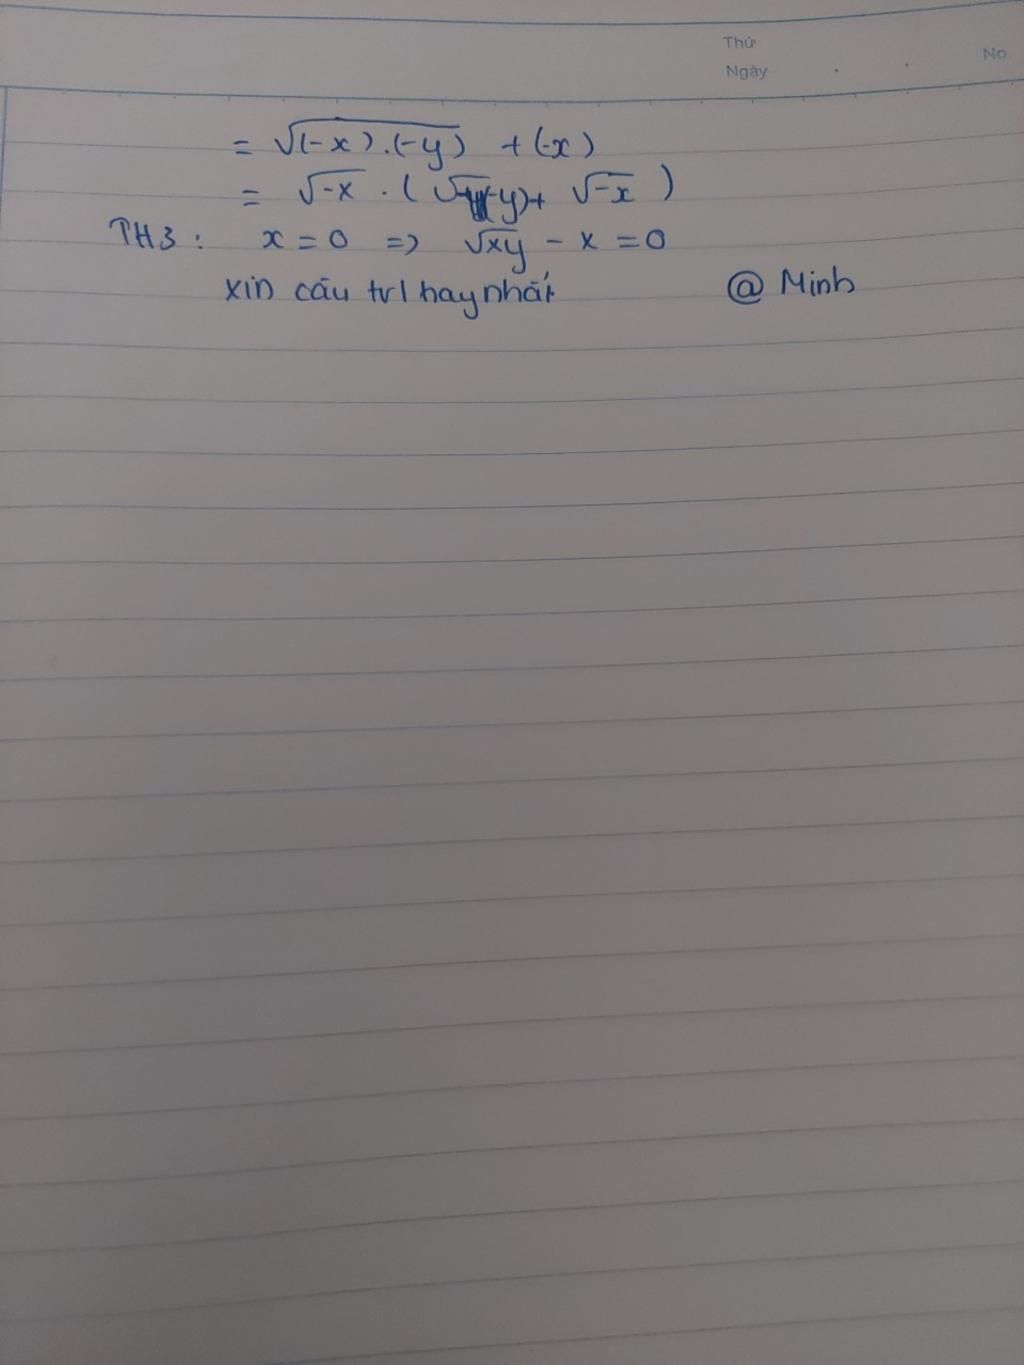 Thứ
Ngày
No
= √(-x).(-y) + (-x)
= √-x . ( √(-y) + √-x )
TH3 : x = 0 => √xy - x = 0
xin câu trl hay nhất @ Minh